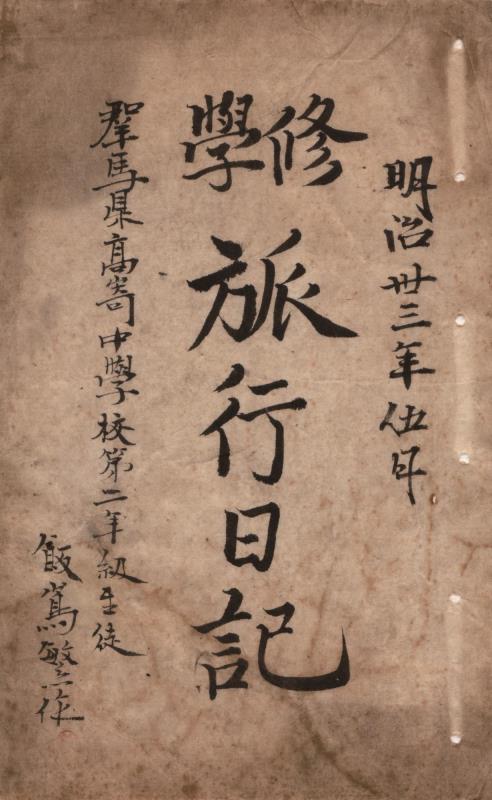 明治卅三年伍月
修學旅行日記
群馬県高崎中學校第二年級生徒
飯嶌繁作